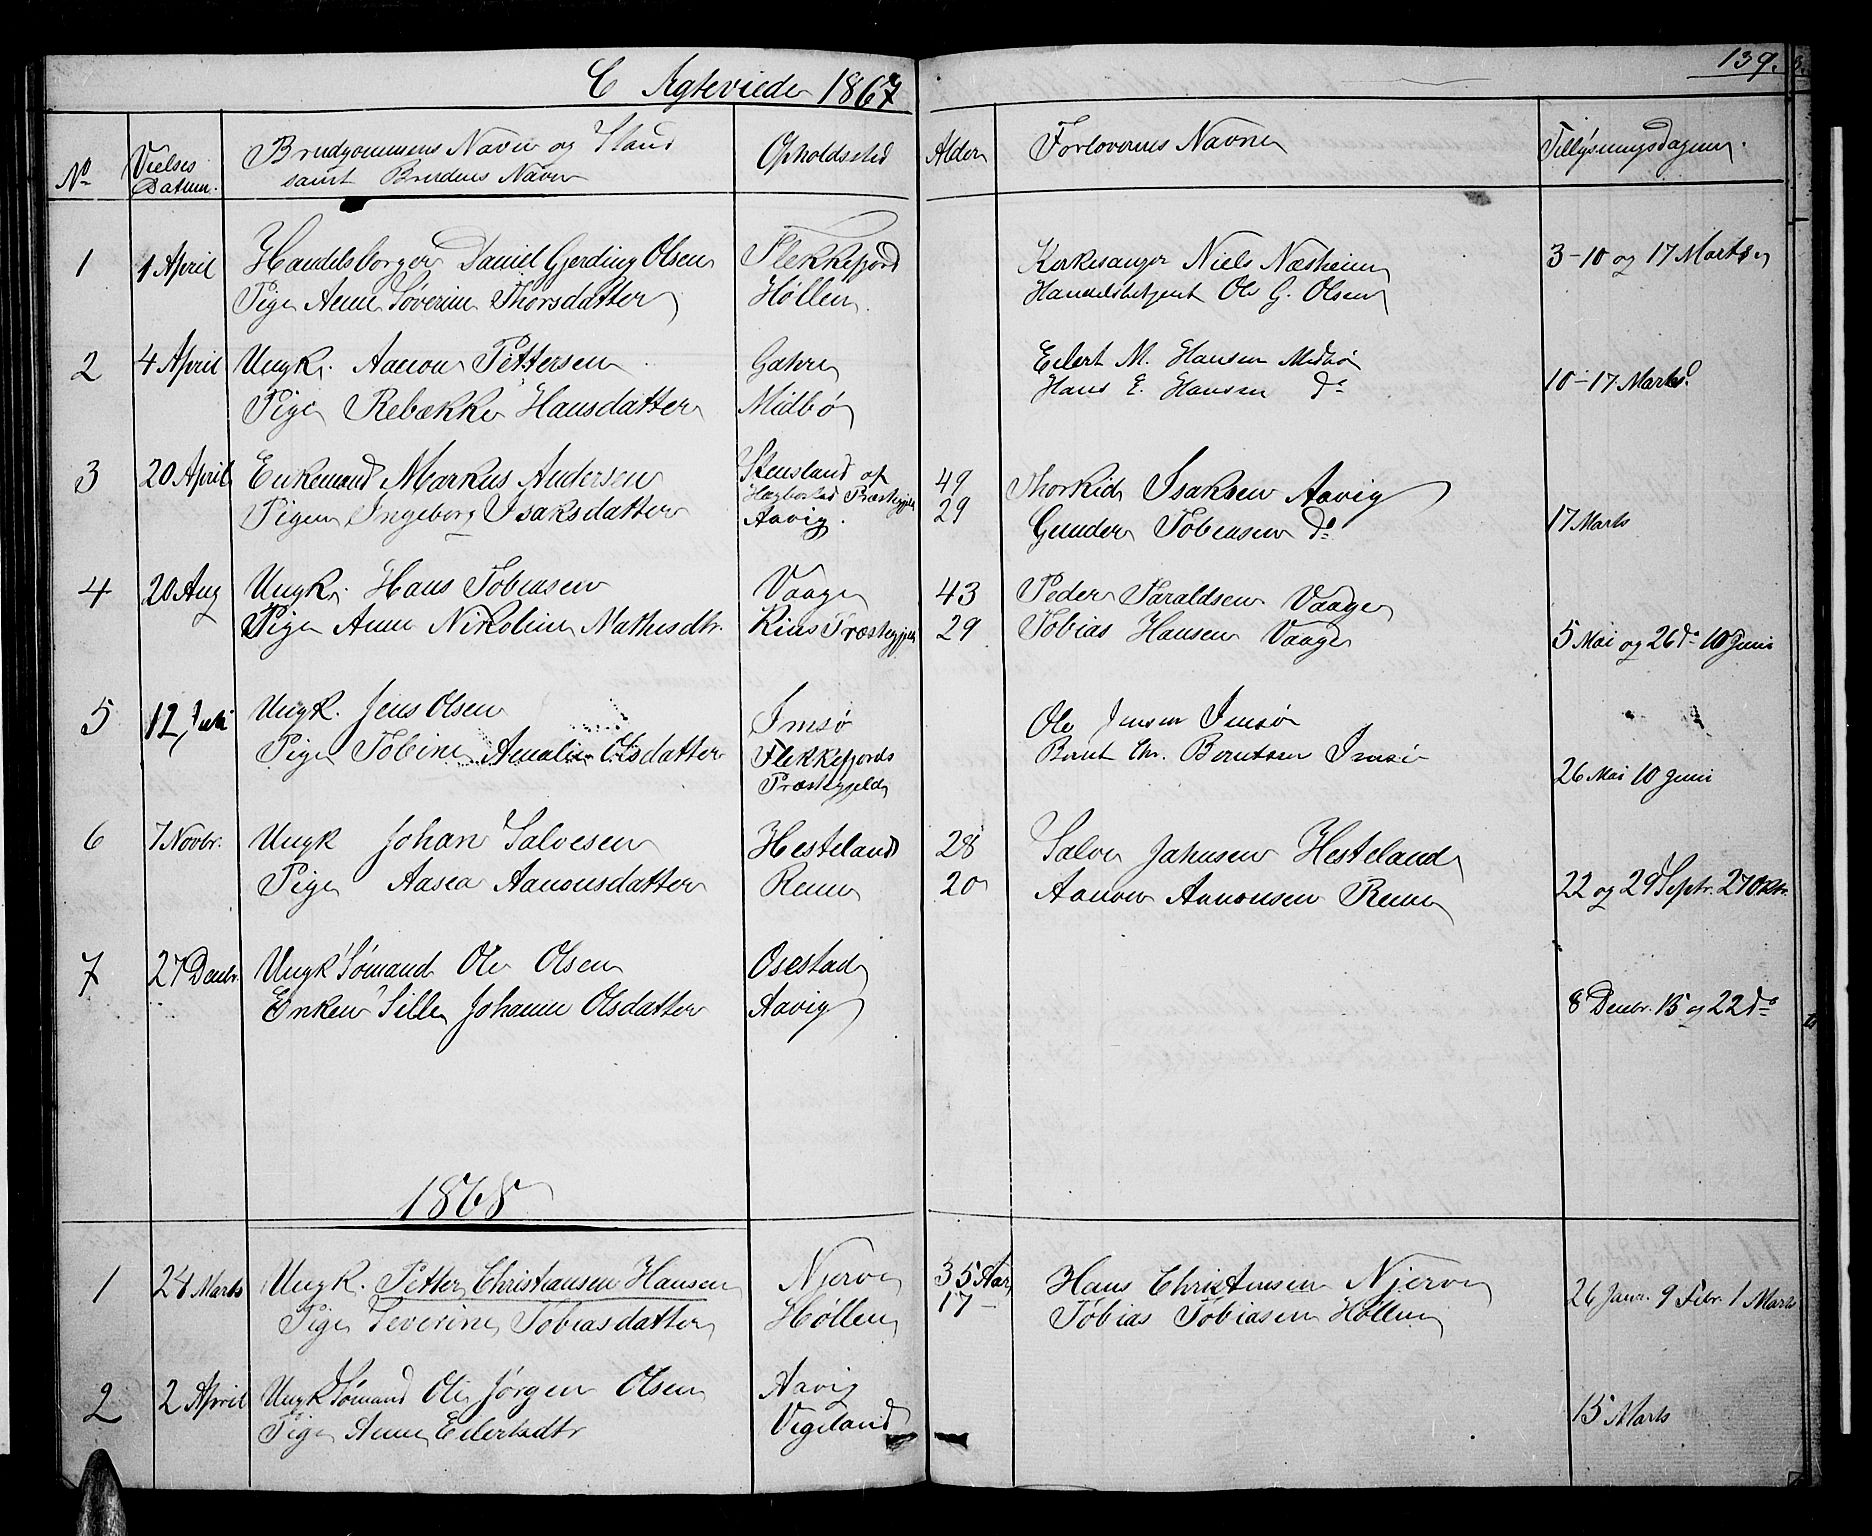 C Ægteviede 1867
139.
No
Vielses Datum.
Brudgommens Navn og Stand
samt Brudens Navn
Opholdssted
Alder
Forlovernes Navne
Tillysningsdagene.
1 1 April Handelsborger Daniel Gjerding Olsen Flekkefjord Kirkesanger Niels Næsheim 3-10 og 17 Marts
Pige Anne Severine Thorsdatter Høllen Handelsbetjent Ole G. Olsen
2 4 April Ungk. Aanon Pettersen Gahre Eilert M. Hansen Midbø
Pige Rebække Hansdatter Midbø Hans E. Hansen do 10-17 Marts
3 20 April Enkemand Markus Andersen Stensland af Hægbostad Præstegjeld 49 Thorkild Isaksen Aavig
Pigen Ingeborg Isaksdatter Aavig. 29 Gunder Tobiasen do 17 Marts
4 20 Aug Ungk. Hans Tobiasen Vaage 43 Peder Taraldsen Vaage
Pige Anne Nikoline Mathisdtr. Præstegjeld 29 Tobias Hansen Vaage 5 Mai og 26 do 10 Juni
5 12 Juli Ungk. Jens Olsen Imsø Ole Jensen Imsø
Pige Tobine Amalie Olsdatter Flekkefjords Præstegjeld Bernt Chr. Berntsen Imsø 26 Mai 10 Juni
6 7 Novbr. Ungk Johan Salvesen Hesteland 28 Salve Jahnsen Hesteland
Pige Aasea Aanonsdatter Renne 20 Aanon Aanonsen Renne 22 og 29 Septr. 27 Oktr.
7 27 Decbr. Ungk Sømand Ole Olsen Osestad
Enken Sille Johanne Olsdatter Aavig 8 Decbr. 15 og 22 do
1868
1 24 Marts Ungk. Petter Christiansen Hansen Njerve 35 Aar Hans Christensen Njerve 26 Janr. 9 Febr. 1 Marts
Pige Severine Tobiasdatter Høllen 17 - Tobias Tobiasen Høllen
2 2 April Ungk Sømand Ole Jörgen Olsen Aavig
Pige Anne Eilertsdtr Vigeland 15 Marts